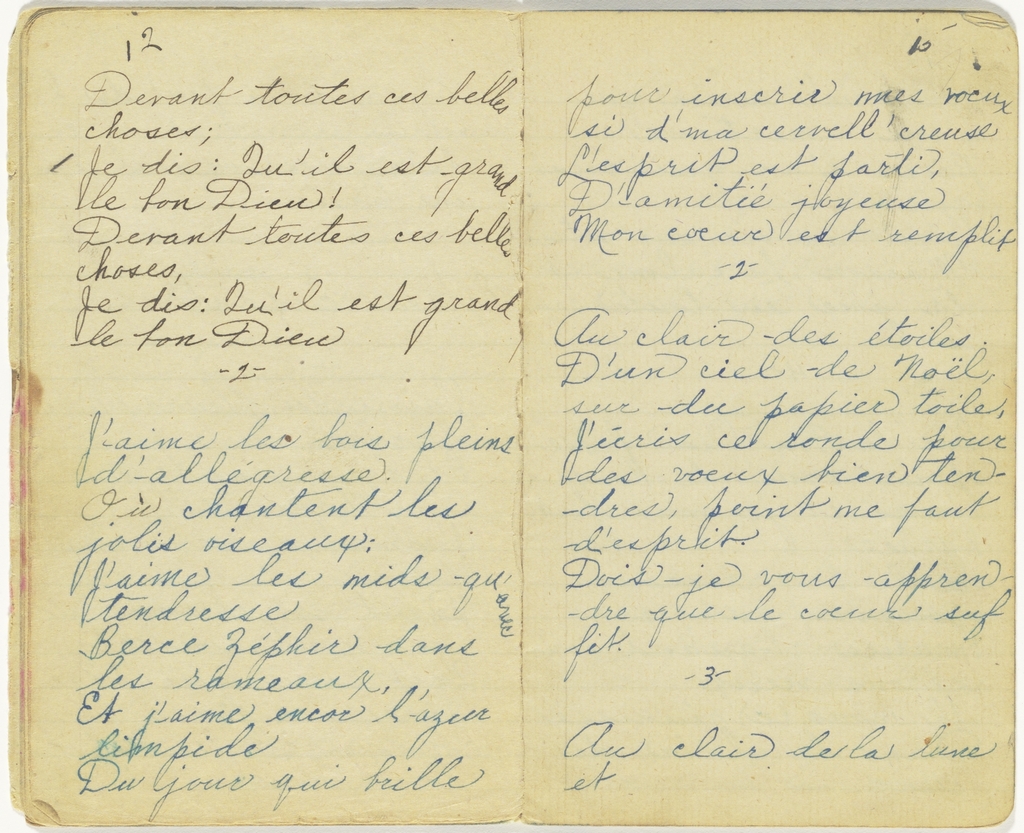 12
Devant toutes ces belles
choses;
Je dis: Qu'il est grand
le bon Dieu!
Devant toutes ces belles
choses,
Je dis: Qu'il est grand
le bon Dieu
-2-
J'aime les bois pleins
d'allégresse.
Où chantent les
jolis oiseaux;
J'aime les nids qu'avec
tendresse
Berce Zéphir dans
les rameaux,
Et j'aime encor l'azur
limpide
Du jour qui brille
pour inscrir mes voeux
si d'ma cervell' creuse
L'esprit est parti,
D'amitié joyeuse
Mon coeur est remplit
-2-
Au clair des étoiles.
D'un ciel de Noël,
sur du papier toile,
J'écris ce ronde pour
des voeux bien ten-
-dres, point me faut
d'esprit.
Dois-je vous appren-
-dre que le coeur suf
fit.
-3-
Au clair de la lune
et